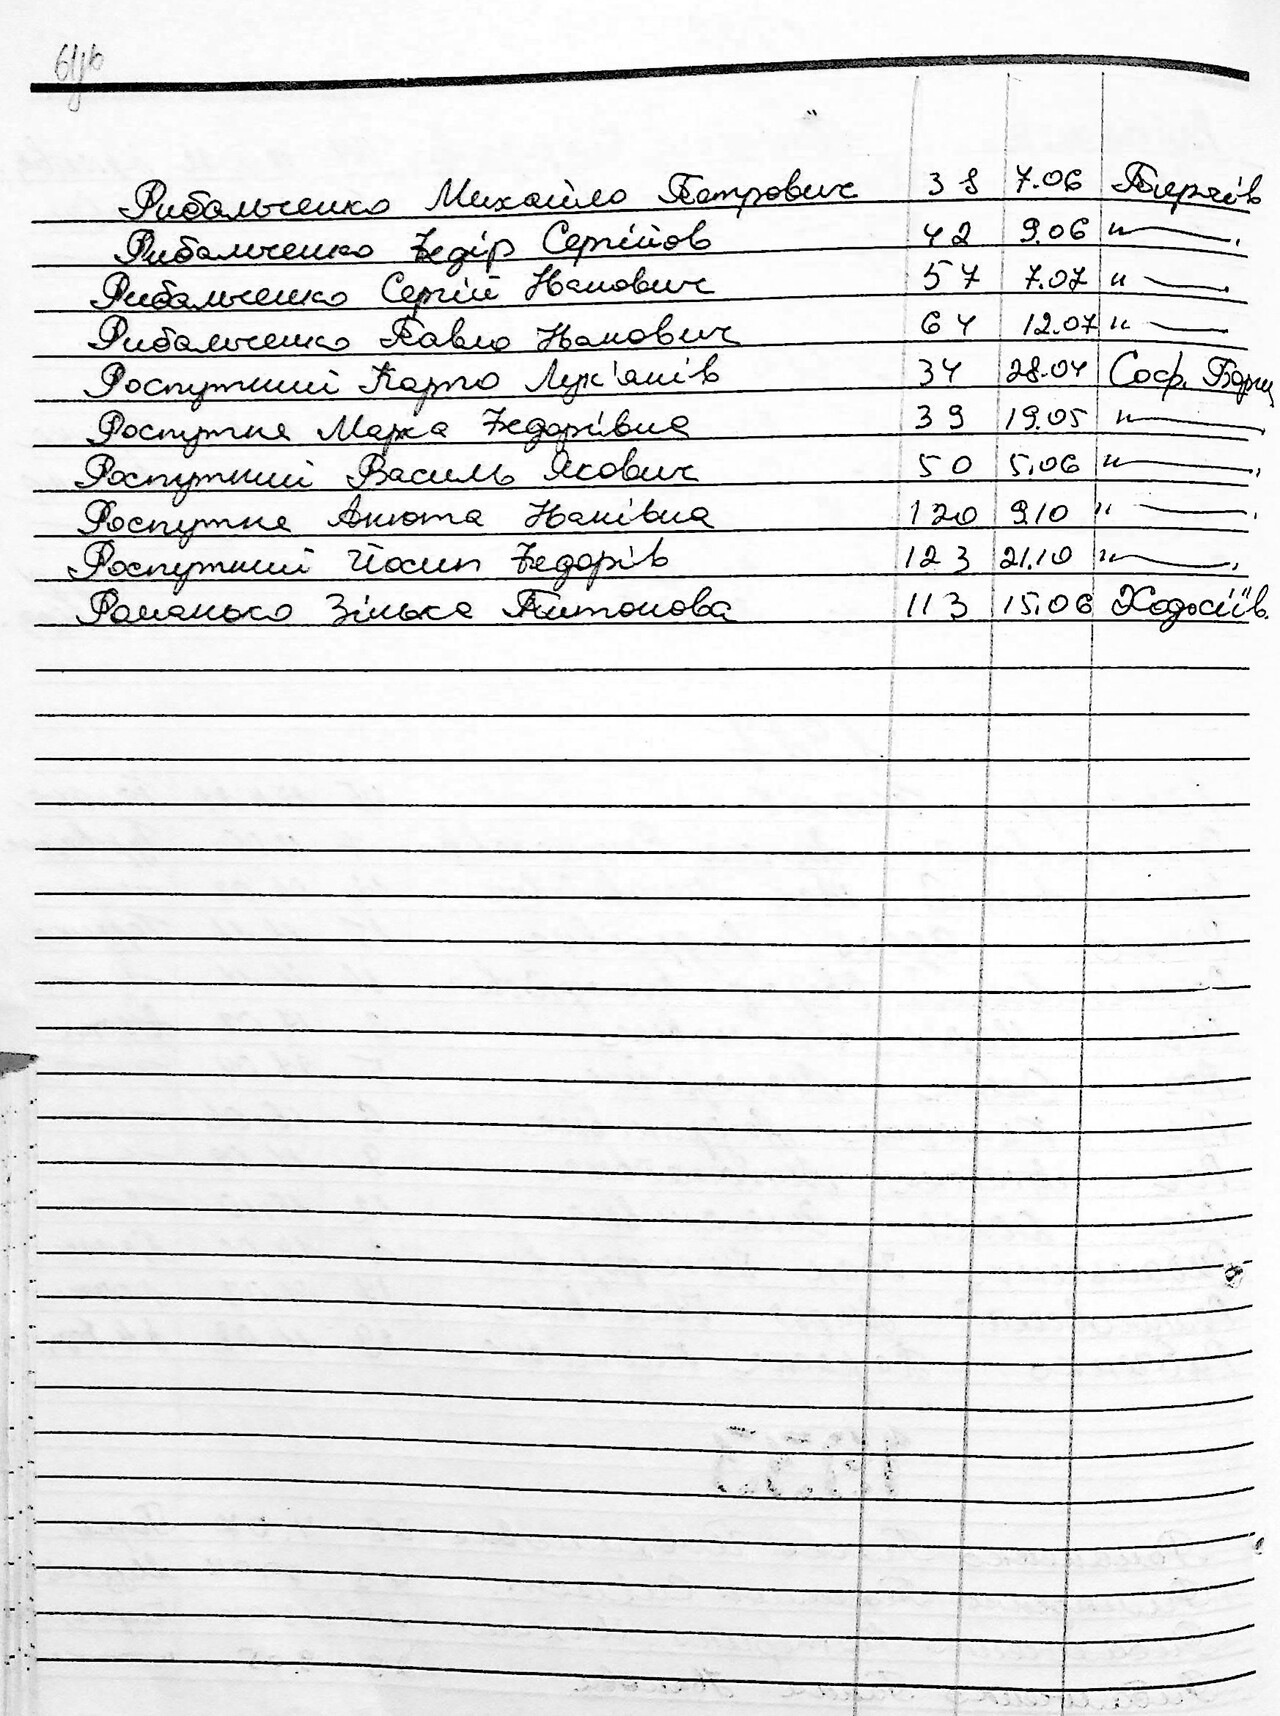 Рибальченко Михайло Петрович 38 7.06
Рибальченко Федір Сергійов 42 9.06 "—
Рибальченко Сергій Іванович 57 7.07 "—
Рибальченко Павло Іванович 64 12.07 "—
Роспутний Карпо Лук'янів 34 28.04 Соф. Борщ
Роспутня Марха Федорівна 39 19.05 "—
Роспутний Василь Якович 50 5.06 "—
Роспутня Анюта Іванівна 120 9.10 "—
Роспутний Йосип Федорів 123 21.10 "—
Романько Зінька Антонова 113 15.06 Ходосіїв.